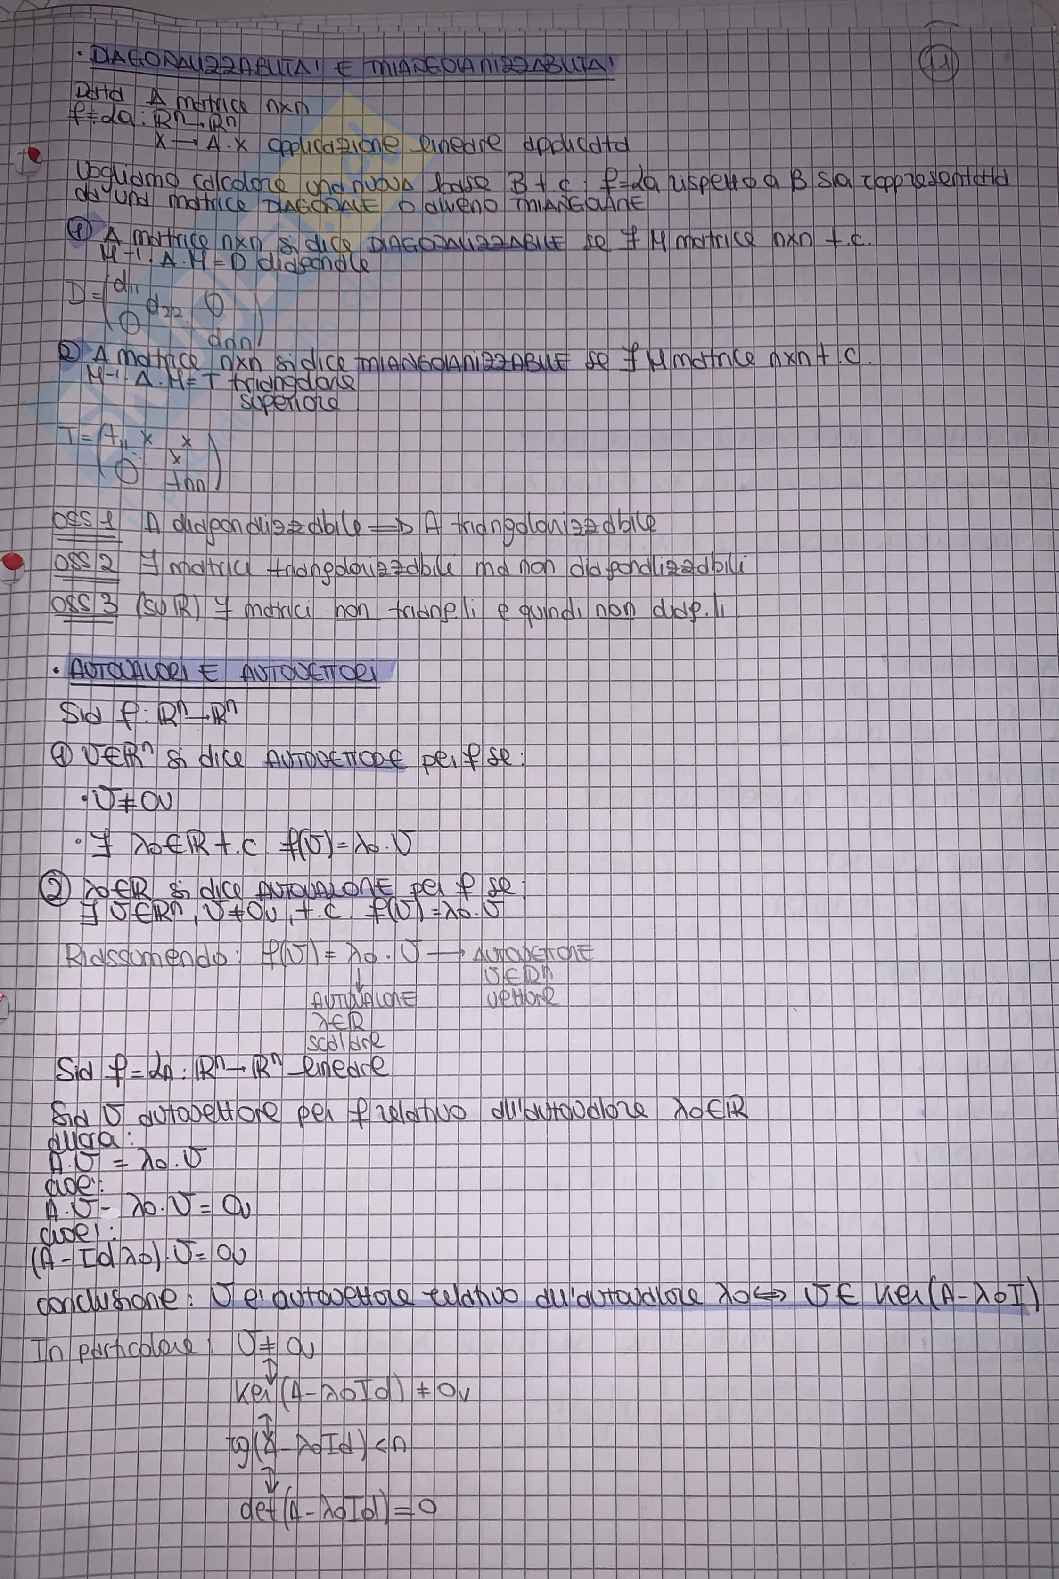 11
· DIAGONALIZZABILITA' E TRIANGOLARIZZABILITA'
Data A matrice nxn
f=LA: ℝⁿ→ℝⁿ
x → A·x applicazione lineare applicata
Vogliamo calcolare una nuova base B t.c. f=La rispetto a B sia rappresentata
da una matrice DIAGONALE o almeno TRIANGOLARE
① A matrice nxn si dice DIAGONALIZZABILE se ∃ M matrice nxn t.c.
M-1·A·M=D diagonale
D=(d11 d22 0
0 dnn)
② A matrice nxn si dice TRIANGOLARIZZABILE se ∃ M matrice nxn t.c.
M-1·A·M=T triangolare
superiore
T=(t11 x x
0 x
tnn)
OSS 1 A diagonalizzabile ⟹ A triangolarizzabile
OSS 2 ∃ matrici triangolarizzabili ma non diagonalizzabili
OSS 3 (su ℝ) ∃ matrici non triang.li e quindi non diag.li
· AUTOVALORI E AUTOVETTORI
Sia f: ℝⁿ→ℝⁿ
① v∈ℝⁿ si dice AUTOVETTORE per f se:
· v≠0v
· ∃ λ0∈ℝ t.c f(v)=λ0·v
② λ0∈ℝ si dice AUTOVALORE per f se:
∃ v∈ℝⁿ, v≠0v, t.c f(v)=λ0·v
Riassumendo: f(v)=λ0·v → AUTOVETTORE
↓ v∈ℝn
AUTOVALORE vettore
λ∈ℝ
scalare
Sia f=LA: ℝⁿ→ℝⁿ lineare
Sia v autovettore per f relativo all'autovalore λ0∈ℝ
allora:
A·v = λ0·v
cioe':
A·v - λ0·v = 0v
cioe':
(A-Idλ0)·v=0v
conclusione: v e' autovettore relativo all'autovalore λ0⟺ v∈ Ker(A-λ0I)
In particolare: v≠0v
⇕
Ker(A-λ0Id)≠0v
⇕
rg(A-λ0Id)<n
⇕
det(A-λ0Id)=0